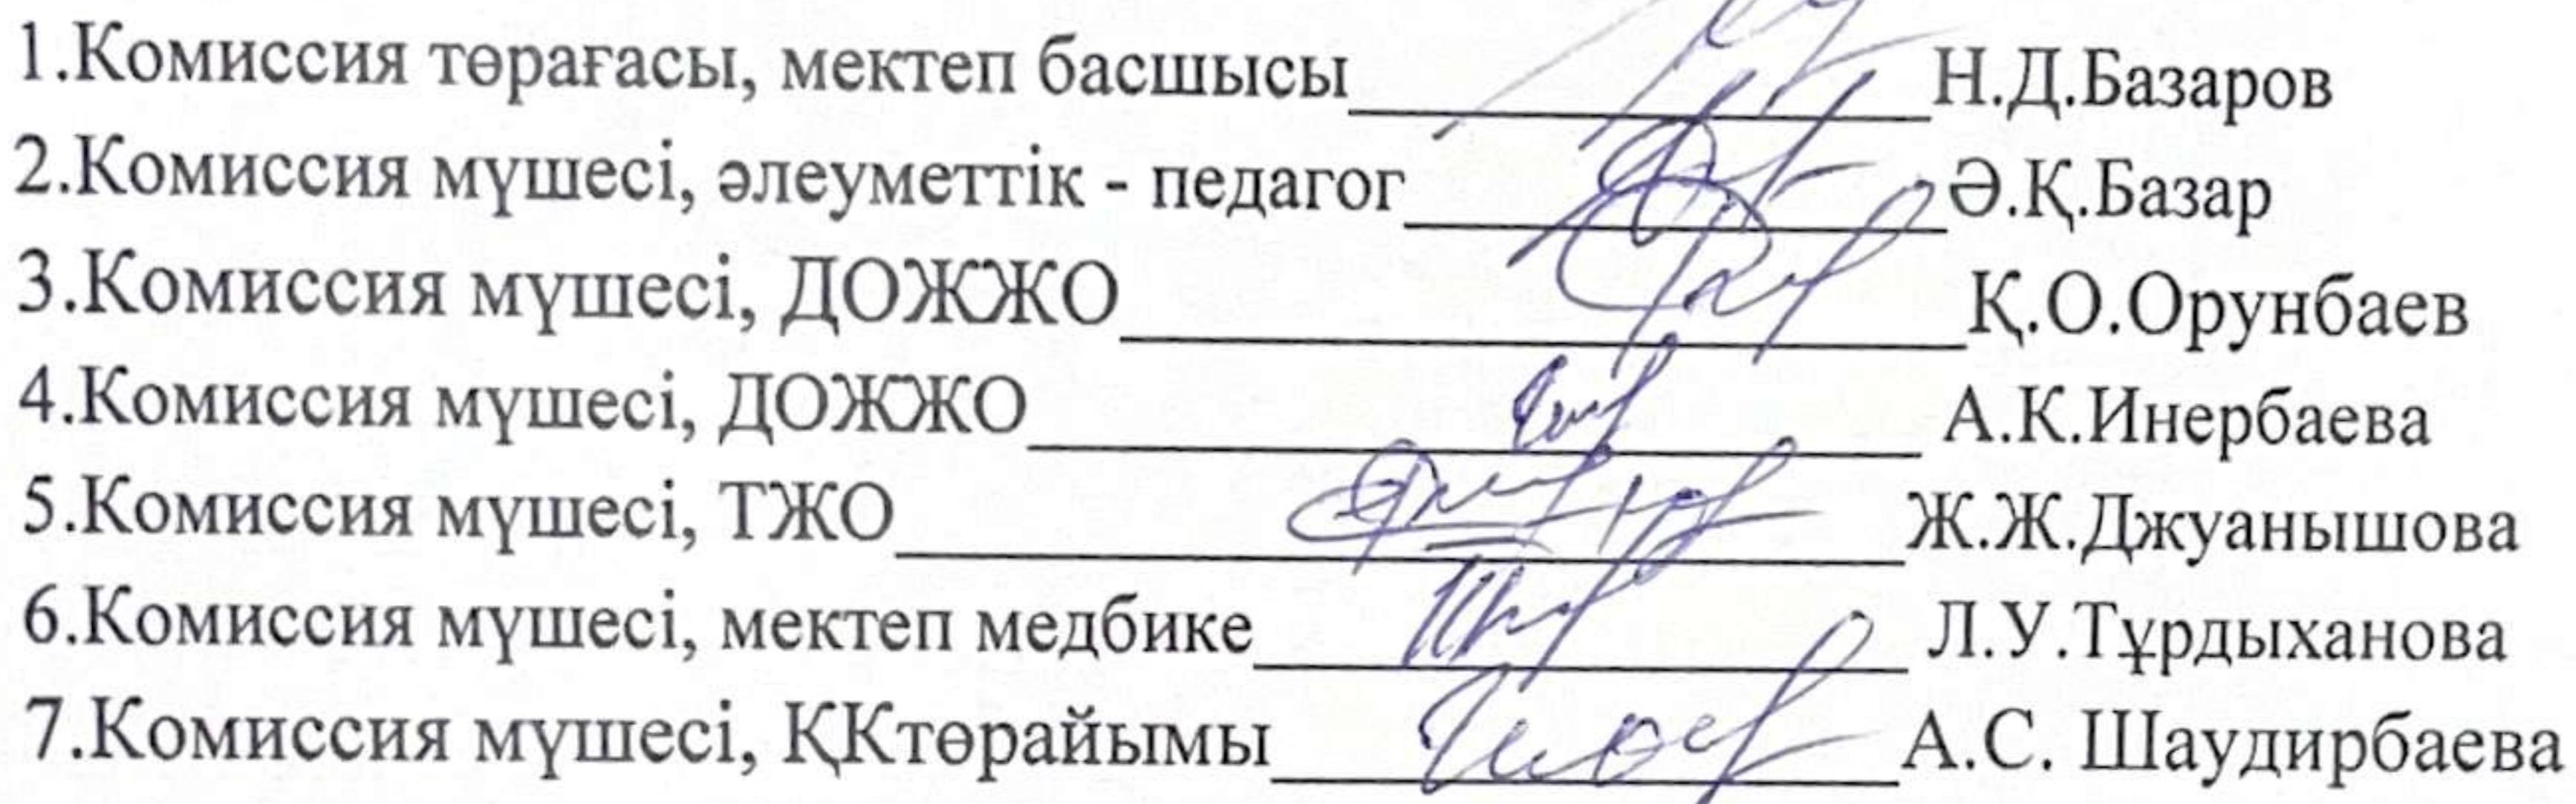 1.Комиссия төрағасы, мектеп басшысы____________Н.Д.Базаров
2.Комиссия мүшесі, әлеуметтік - педагог____________Ә.Қ.Базар
3.Комиссия мүшесі, ДОЖЖО____________Қ.О.Орунбаев
4.Комиссия мүшесі, ДОЖЖО____________А.К.Инербаева
5.Комиссия мүшесі, ТЖО____________Ж.Ж.Джуанышова
6.Комиссия мүшесі, мектеп медбике____________Л.У.Тұрдыханова
7.Комиссия мүшесі, ҚКтөрайымы____________А.С. Шаудирбаева